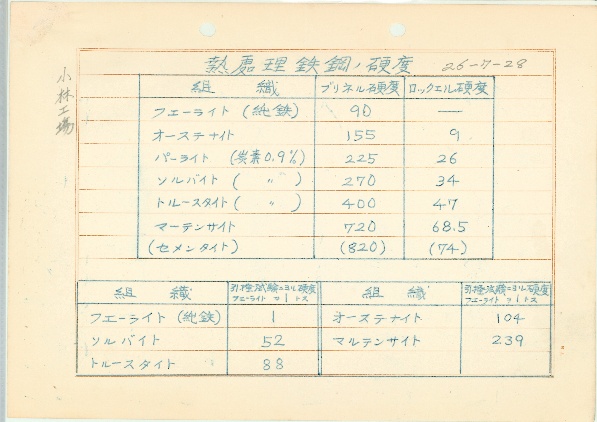 小林工場
熱處理鉄鋼ノ硬度 26-7-28
組織 ブリネル硬度 ロックエル硬度
フエーライト (純鉄) 90 —
オーステナイト 155 9
パーライト (炭素0.9%) 225 26
ソルバイト ( 〃 ) 270 34
トルースタイト ( 〃 ) 400 47
マーテンサイト 720 68.5
(セメンタイト) (820) (74)
組織 引掻試験ニヨル硬度 組織 引掻試験ニヨル硬度
フエーライト ヲ1トス フエーライト ヲ1トス
フエーライト (純鉄) 1 オーステナイト 104
ソルバイト 52 マルテンサイト 239
トルースタイト 88